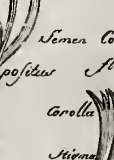 Semen Co
positus fl
Corolla
Stigma